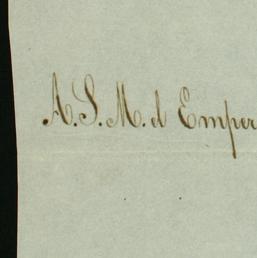 A. S. M. el Emper